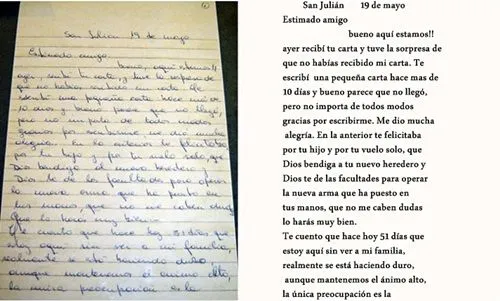 1
San Julián 19 de mayo
Estimado amigo
bueno, aquí estamos!!
ayer recibí tu carta, y tuve la sorpresa de
que no habías recibido mi carta. Te
escribí una pequeña carta hace más de
10 días y bueno parece que no llegó,
pero no importa de todos modos
gracias por escribirme me dio mucha
alegría. En la anterior te felicitaba
por tu hijo y por tu vuelo solo, que
Dios bendiga el nuevo heredero y
Dios te de las facultades para operar
la nueva arma que ha puesto en
tus manos, que no me caben dudas
que lo harás muy bien.
Te cuento que hace hoy 51 días que
estoy aquí sin ver a mi familia,
realmente se está haciendo duro,
aunque mantenemos el ánimo alto,
la única preocupación es la
San Julián 19 de mayo
Estimado amigo
bueno aquí estamos!!
ayer recibí tu carta y tuve la sorpresa de
que no habías recibido mi carta. Te
escribí una pequeña carta hace mas de
10 días y bueno parece que no llegó,
pero no importa de todos modos
gracias por escribirme. Me dio mucha
alegría. En la anterior te felicitaba
por tu hijo y por tu vuelo solo, que
Dios bendiga a tu nuevo heredero y
Dios te de las facultades para operar
la nueva arma que ha puesto en
tus manos, que no me caben dudas
lo harás muy bien.
Te cuento que hace hoy 51 días que
estoy aquí sin ver a mi familia,
realmente se está haciendo duro,
aunque mantenemos el ánimo alto,
la única preocupación es la